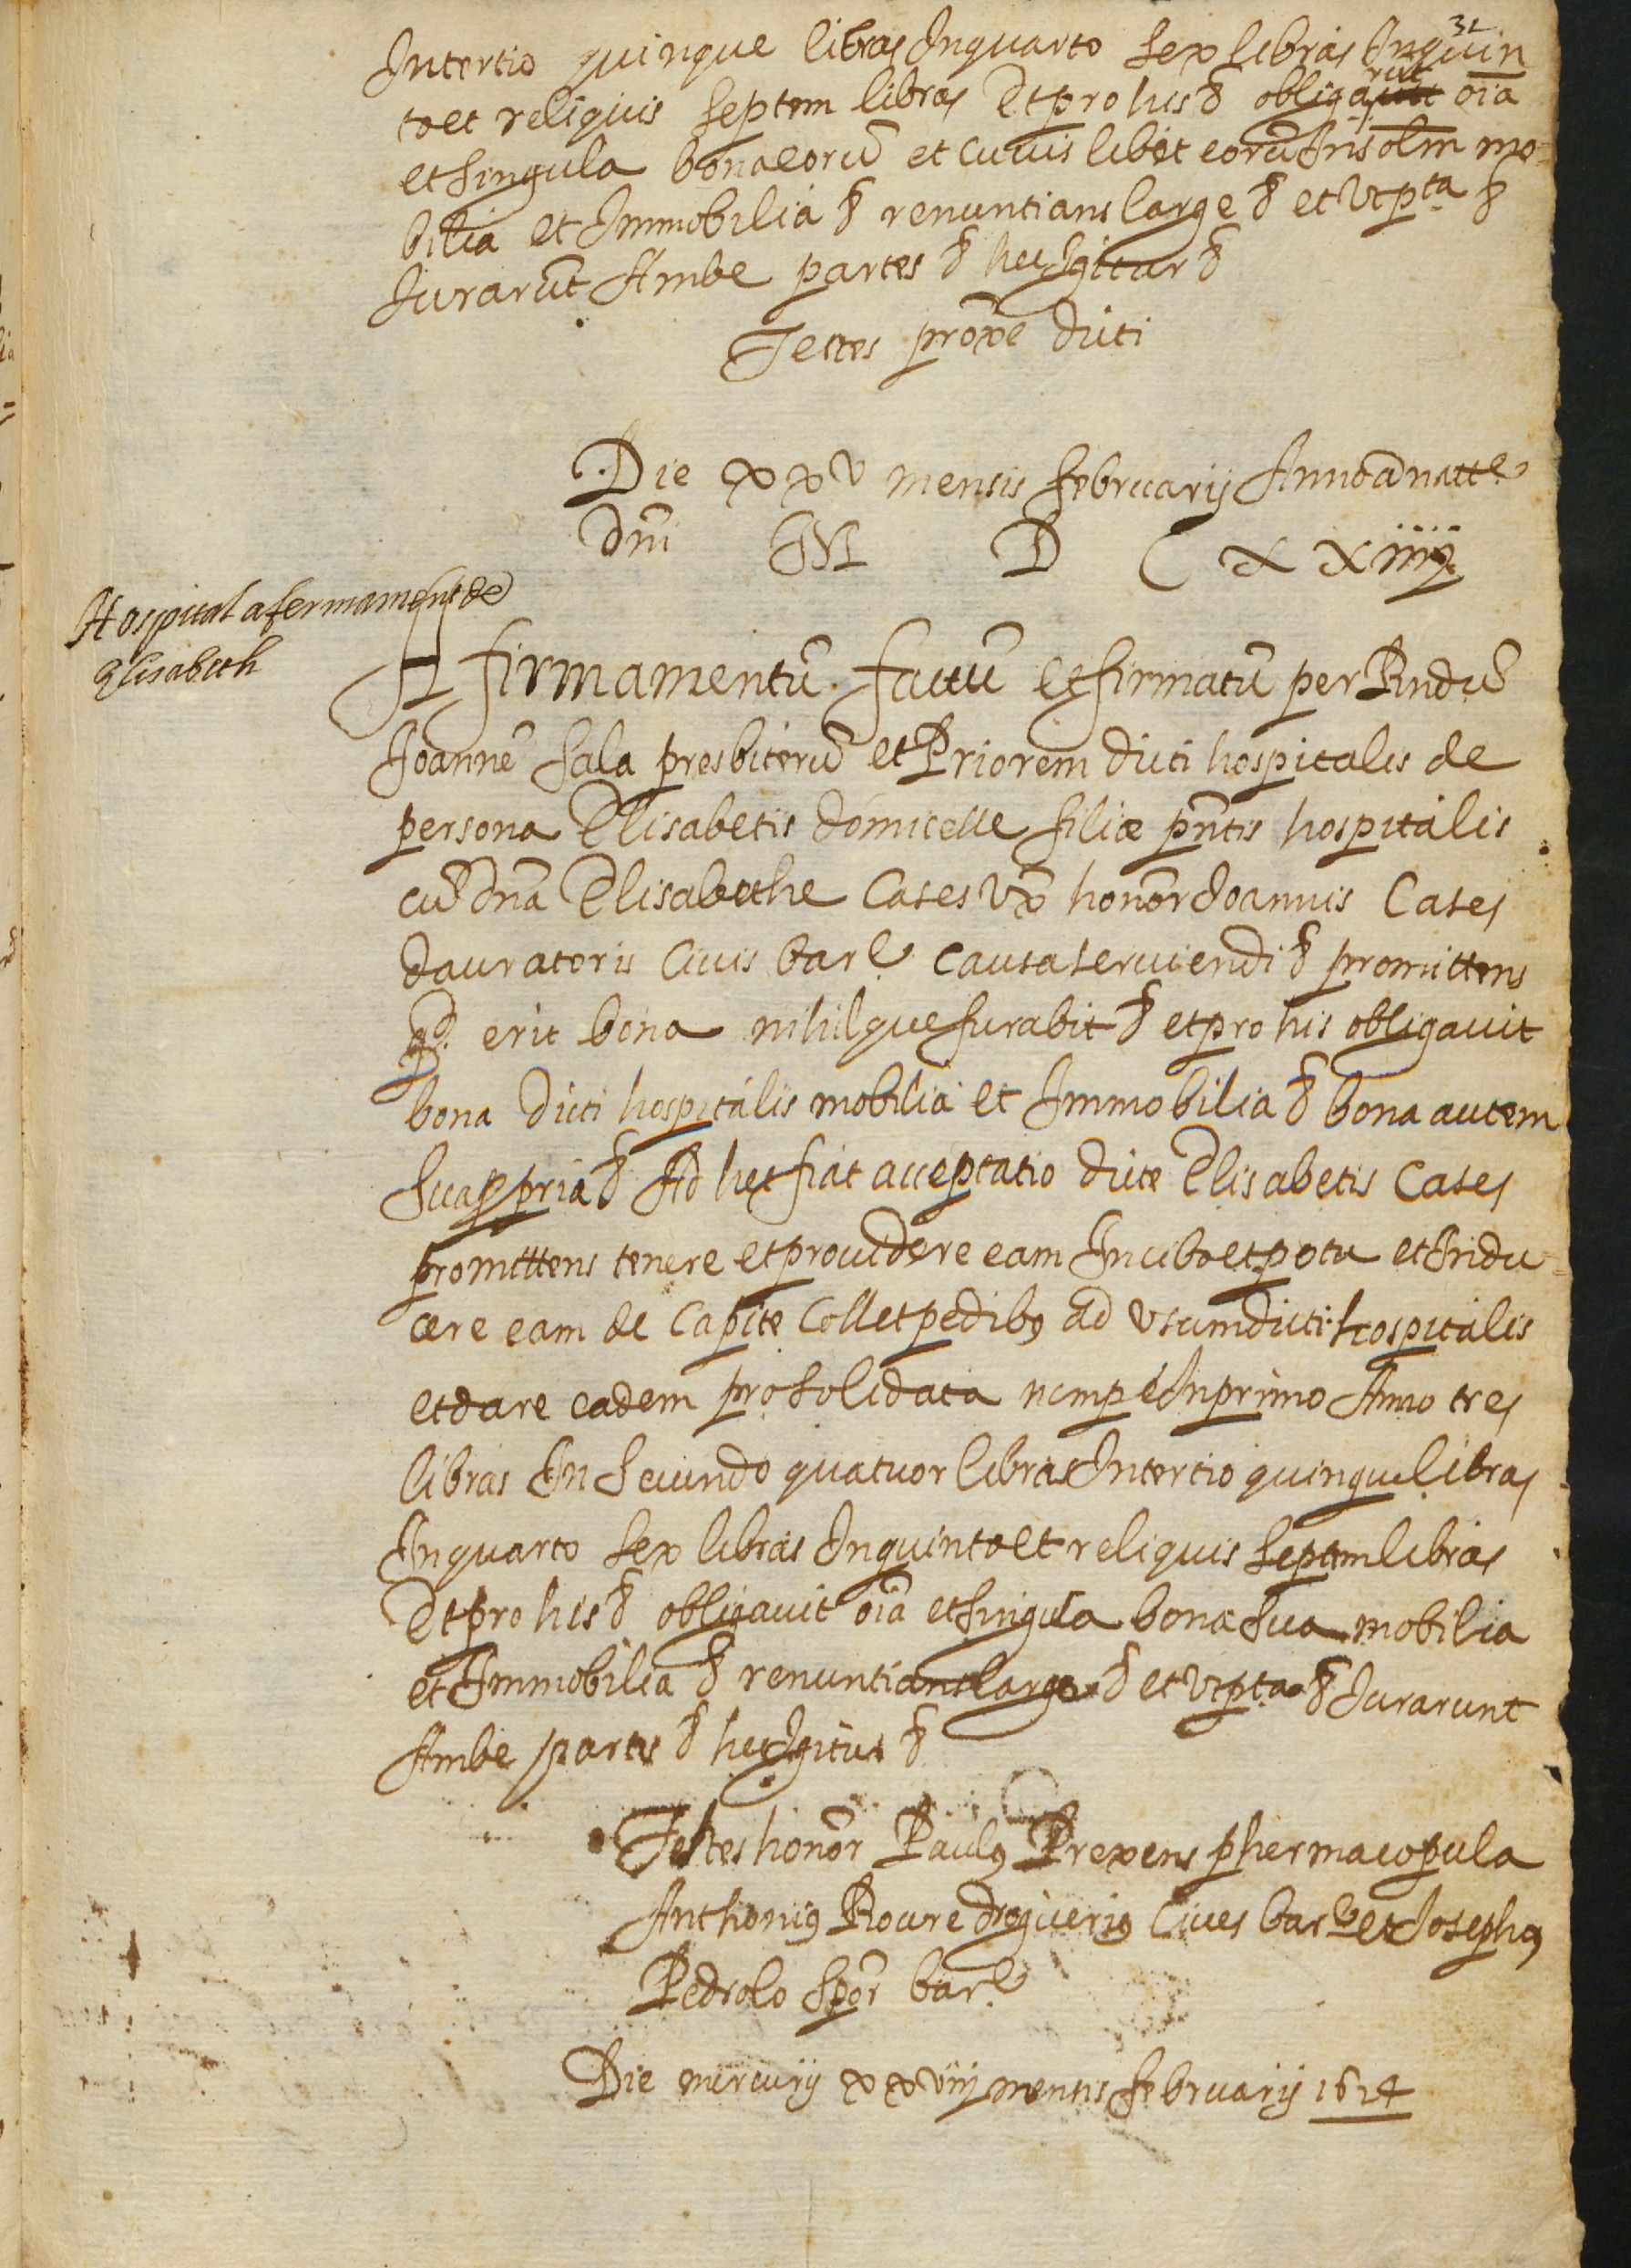 31
Intertio quinque libras Inquarto sex libras Inquin
to et reliquis septem libras Et pro his & obligarũt oĩa
et singula bona eorũ et cuius libet eorũ Insolm mo-
bilia et Immobilia & renuntians large & et vt pta &
Iurarũt Ambe partes & hec Igitur &
Testes proxe dicti
Die xxv mensis februarij Anno a natte
Dñi M D C X Xiiij
Hospital afermament de
Elisabeth
Afirmamentũ factũ et firmatũ per Rndũ
Joannẽ Sala presbiterũ et Priorem dicti hospitalis de
persona Elisabetis domicelle filiæ pñtis hospitalis
cũ Dña Elisabethe Cases vx̃ honor̃ Joannis Cases
dauratoris Ciuis barᵉ causa seruiendi & promittens
qd. erit bona nihilque furabit & et pro his obligauit
bona dicti hospitalis mobilia et Immobilia & bona autem
sua ppria & Ad hec fiat acceptatio dicte Elisabetis Cases
promittens tenere et prouidere eam In cibo et potu et Indu-
cere eam de Capite Coll et pedibꝰ ad vsum dicti hospitalis
et dare eadem pro solidata nempe In primo Anno tres
libras In Secundo quatuor libras Intertio quinque libras
Inquarto sex libras Inquinto et reliquis septem libras
Et pro his & obligauit oĩa et singula bona sua mobilia
et Immobilia & renuntians large & et vt pta & Iurarunt
Ambe partes & hec Igitur &
Testes honor̃ Paulꝰ Prexens phermacopula
Anthoniꝰ Roure drogueriꝰ Ciues barᵉ et Josephꝰ
Pedrolo Spor̃ barᵉ
Die mercurij xxviij mensis februarij 1624